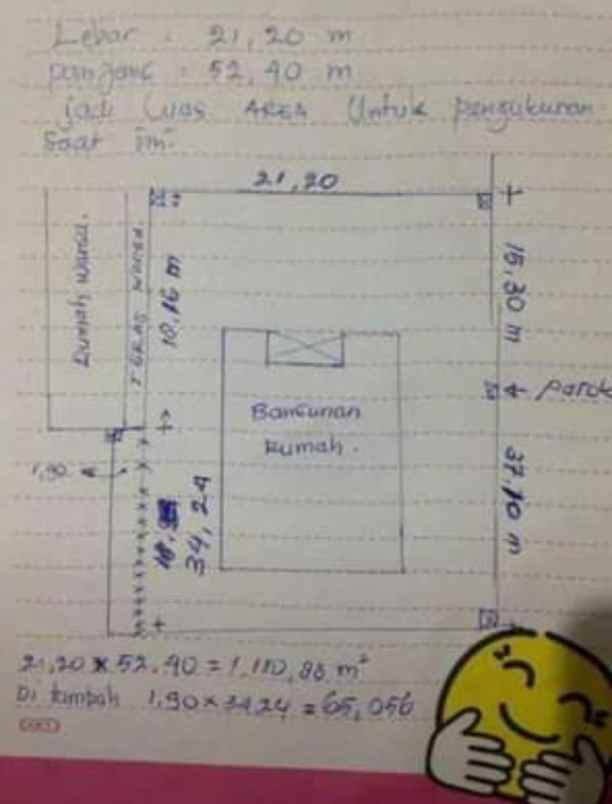 Lebar : 21,20 m
panjang : 52,40 m
jadi Luas AREA Untuk pengukuran
Saat ini.
21,20
Rumah warga.
TERAS WARGA.
18,16 m
15,30 m
Patok
Bangunan
Rumah.
1,90
34,24
37,10 m
21,20 x 52,40 = 1,110,88 m²
Di tambah 1,90 x 34,24 = 65,056